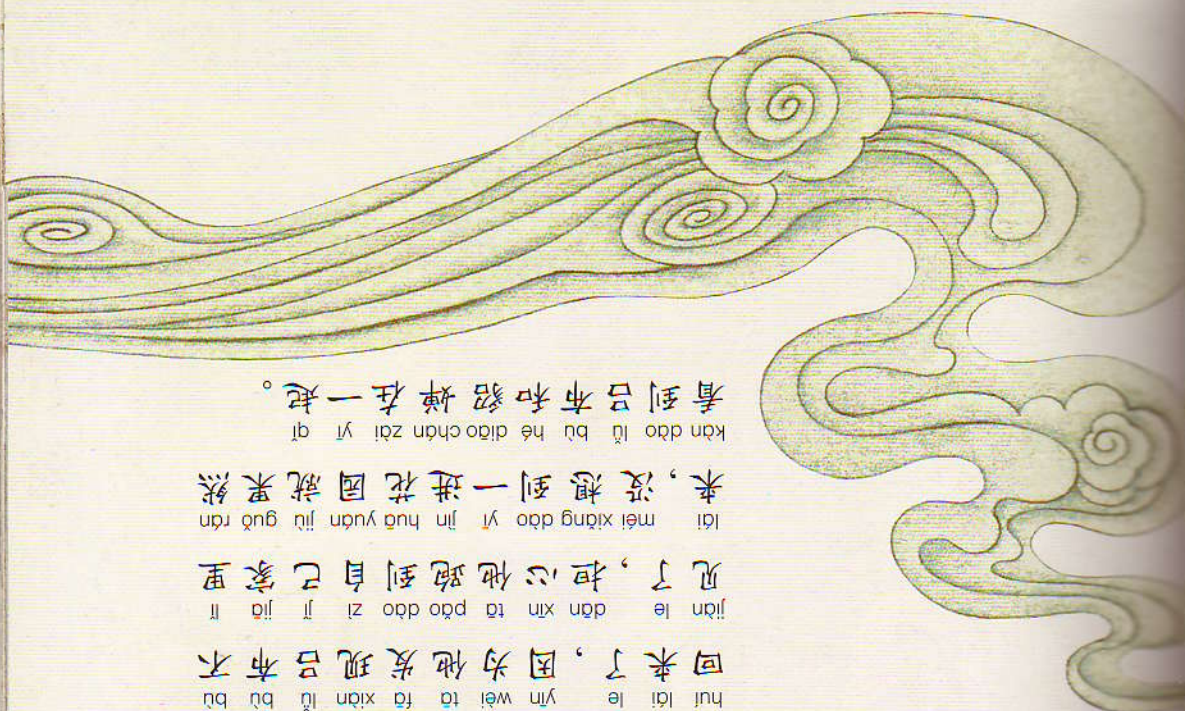 huí lái le yīn wèi tā fā xiàn lǚ bù bù
回来了，因为他发现吕布不
jiàn le dān xīn tā pǎo dào zì jǐ jiā lǐ
见了，担心他跑到自己家里
lái méi xiǎng dào yī jìn huā yuán jiù guǒ rán
来，没想到一进花园就果然
kàn dào lǚ bù hé diāo chán zài yī qǐ
看到吕布和貂蝉在一起。